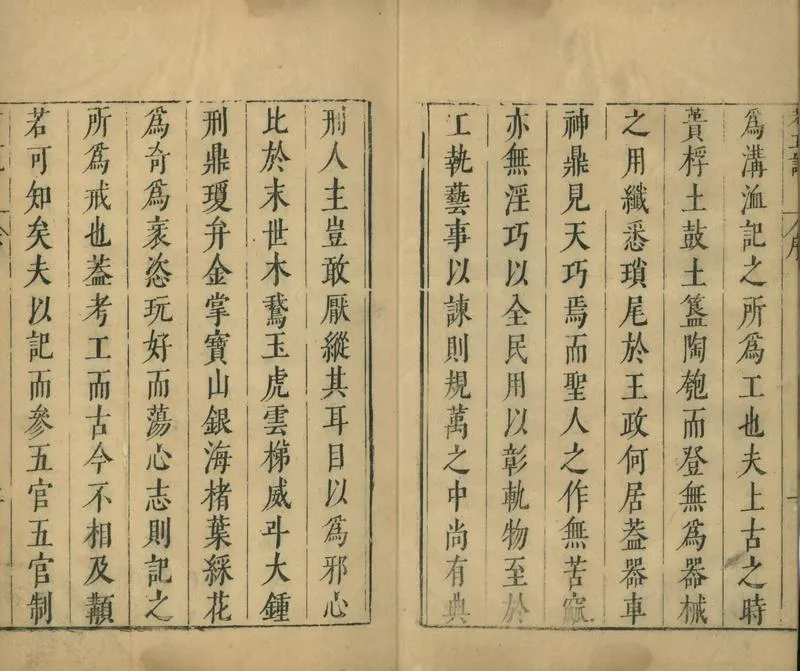 為溝洫記之所為工也夫上古之時
蕢桴土鼓土簋陶匏而登無為器械
之用纖悉瑣尾於王政何居葢器車
神鼎見天巧焉而聖人之作無苦窳
亦無淫巧以全民用以彰軌物至於
工執藝事以諫則規萬之中尚有典
刑人主豈敢厭縱其耳目以為邪心
比於末世木鵞玉虎雲梯威斗大鍾
刑鼎瓊弁金掌寶山銀海楮葉綵花
為奇為衺恣玩好而蕩心志則記之
所為戒也葢考工而古今不相及顜
若可知矣夫以記而參五官五官制